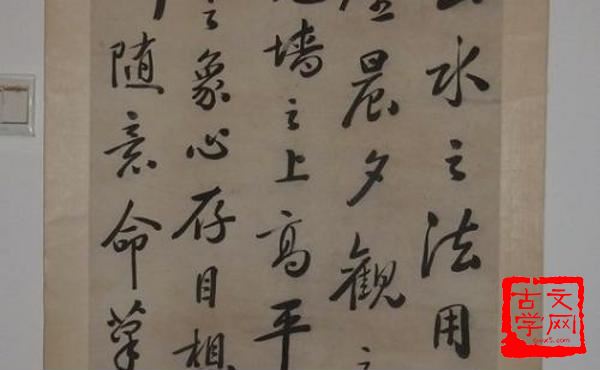 水之法用
晨夕觀之
墙之上高平
之象心存目
随意命筆
古文
学网